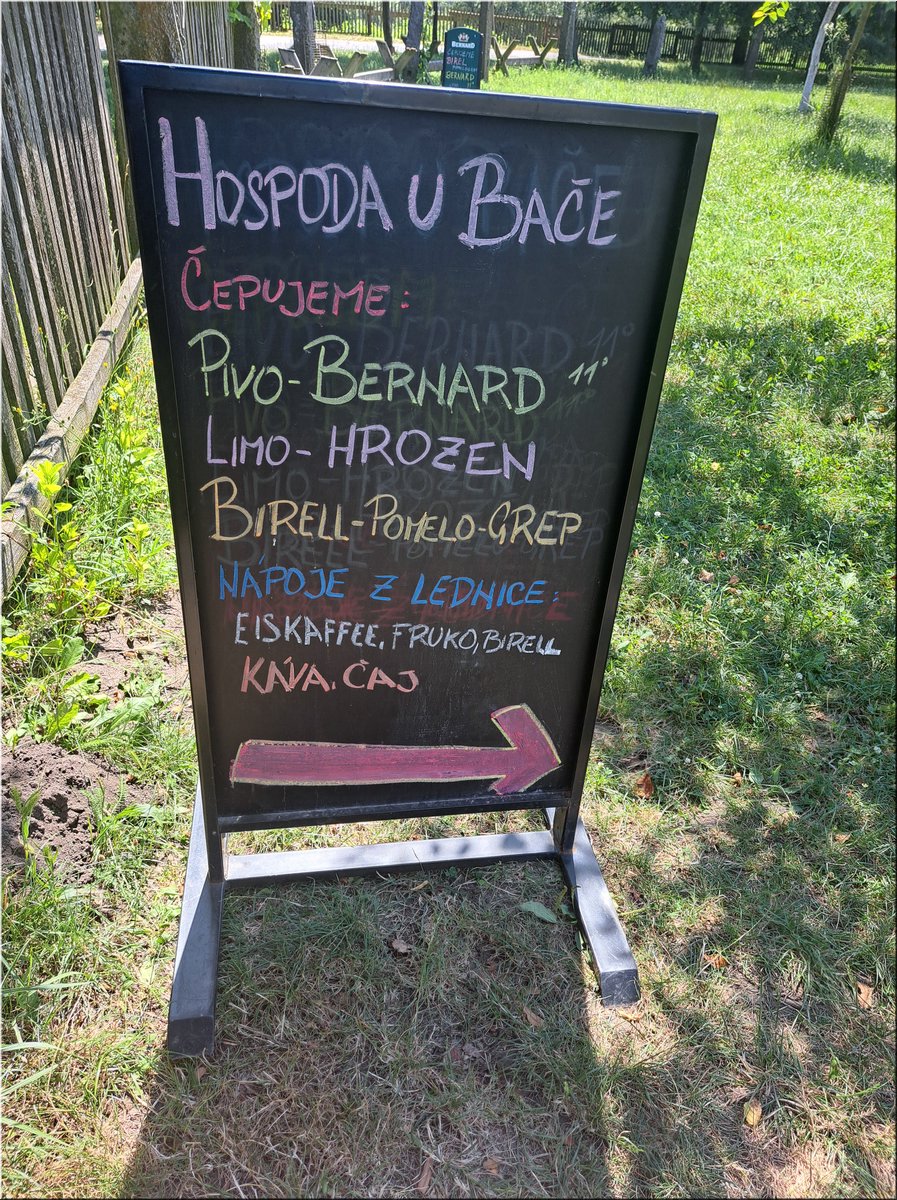 BERNARD
ČEPUJEME
BIREL
BERNARD
HOSPODA U BAČE
ČEPUJEME:
PIVO-BERNARD 11°
LIMO-HROZEN
BIRELL-POMELO-GREP
NÁPOJE Z LEDNICE:
EISKAFFEE, FRUKO, BIRELL
KÁVA, ČAJ